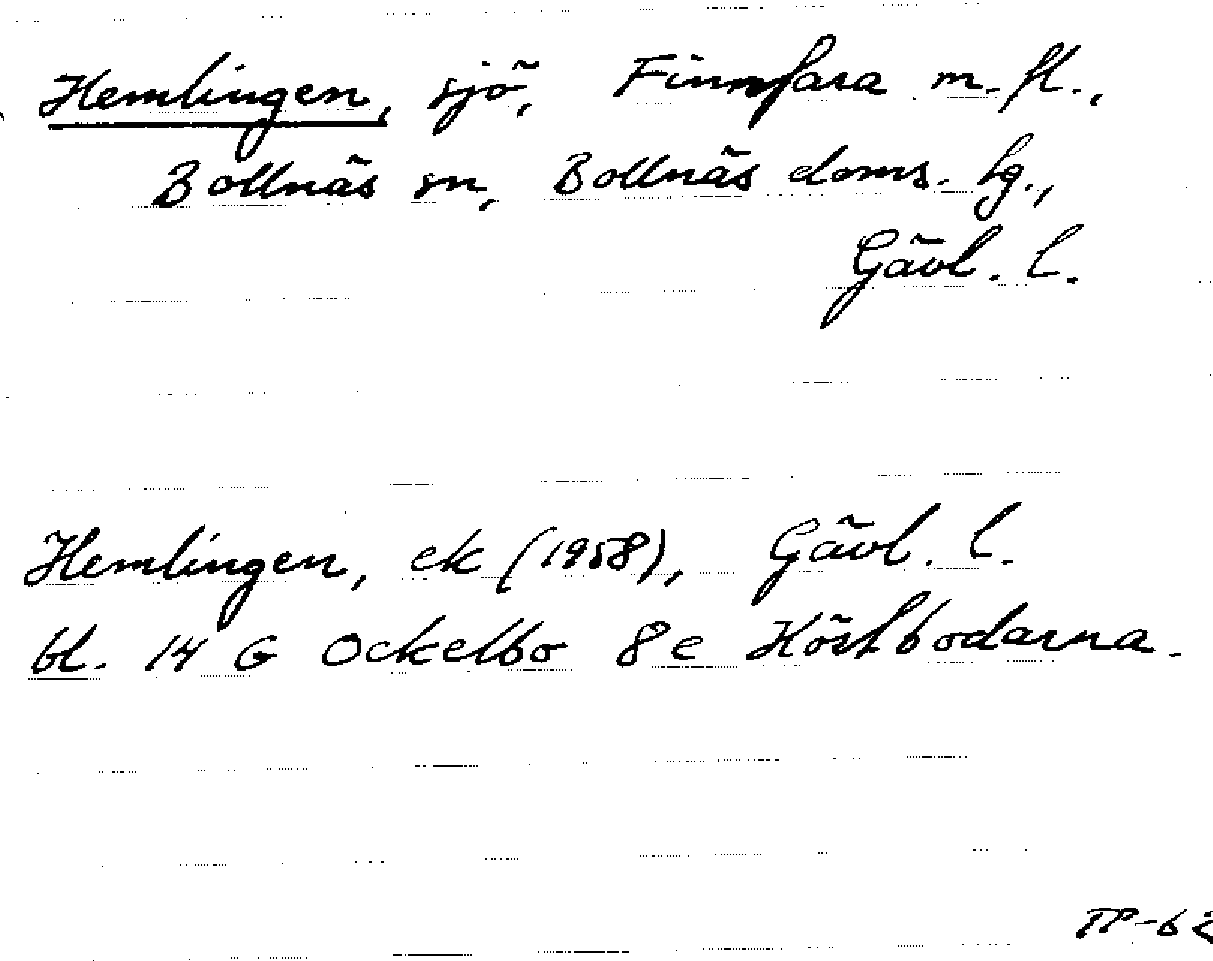 Hemlingen, sjö, Finnfara m. fl.,
Bollnäs sn, Bollnäs doms. hg.,
Gävl. l.
Hemlingen, ek (1958), Gävl. l.
bl. 14 G Ockelbo 8e Höstbodarna.
TP-62